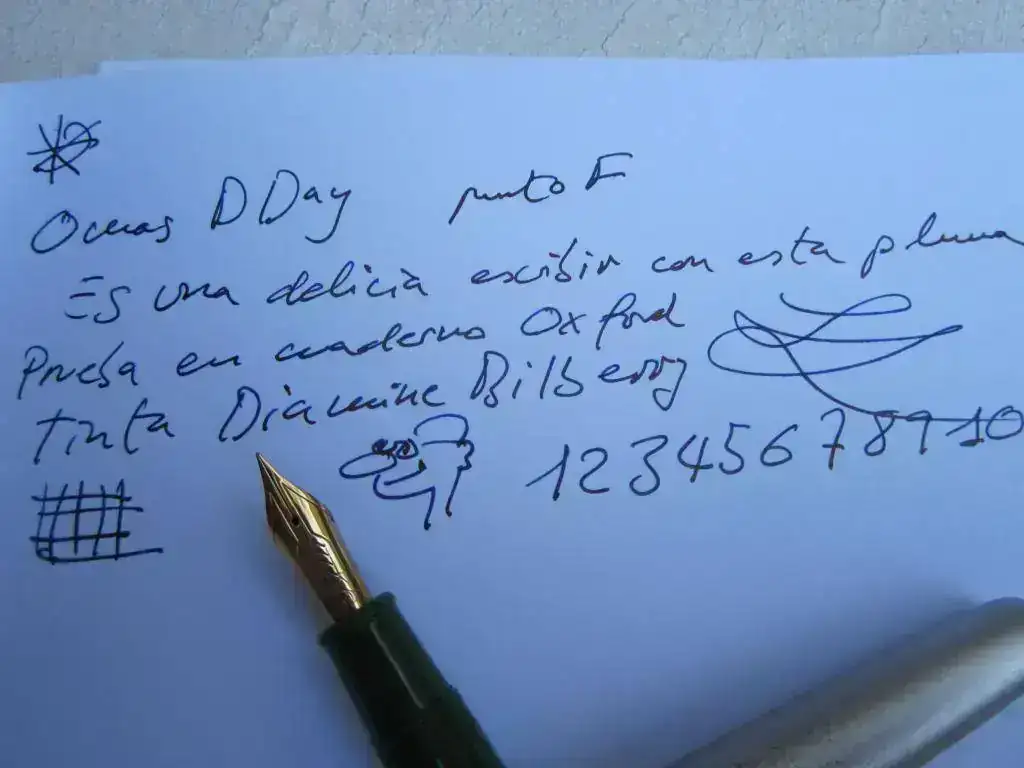 Omas D Day punto F
Es una delicia escribir con esta pluma
Prueba en cuaderno Oxford
tinta Diamine Bilberry
1 2 3 4 5 6 7 8 9 10